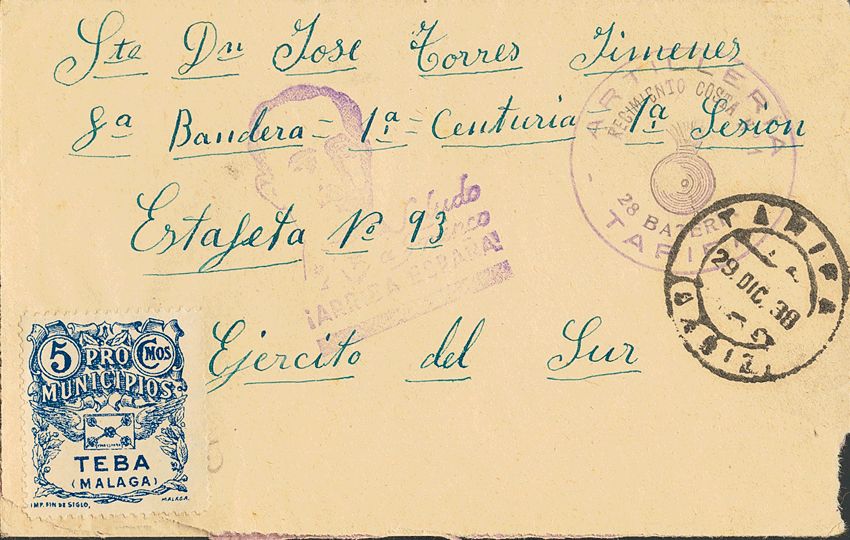 Sto Dn Jose Torres Jimenes
8ª Bandera = 1ª = Centuria 1ª Sesion
Estafeta Nº 93
Ejército del Sur
Saludo
a Franco
¡ARRIBA ESPAÑA!
ARTILLERIA
REGIMIENTO COSTA
28 BATERI
TARIFA
TARIFA
29 DIC. 38
5 PRO Cmos
MUNICIPIOS
TEBA
(MALAGA)
IMP. FIN DE SIGLO, MALAGA.